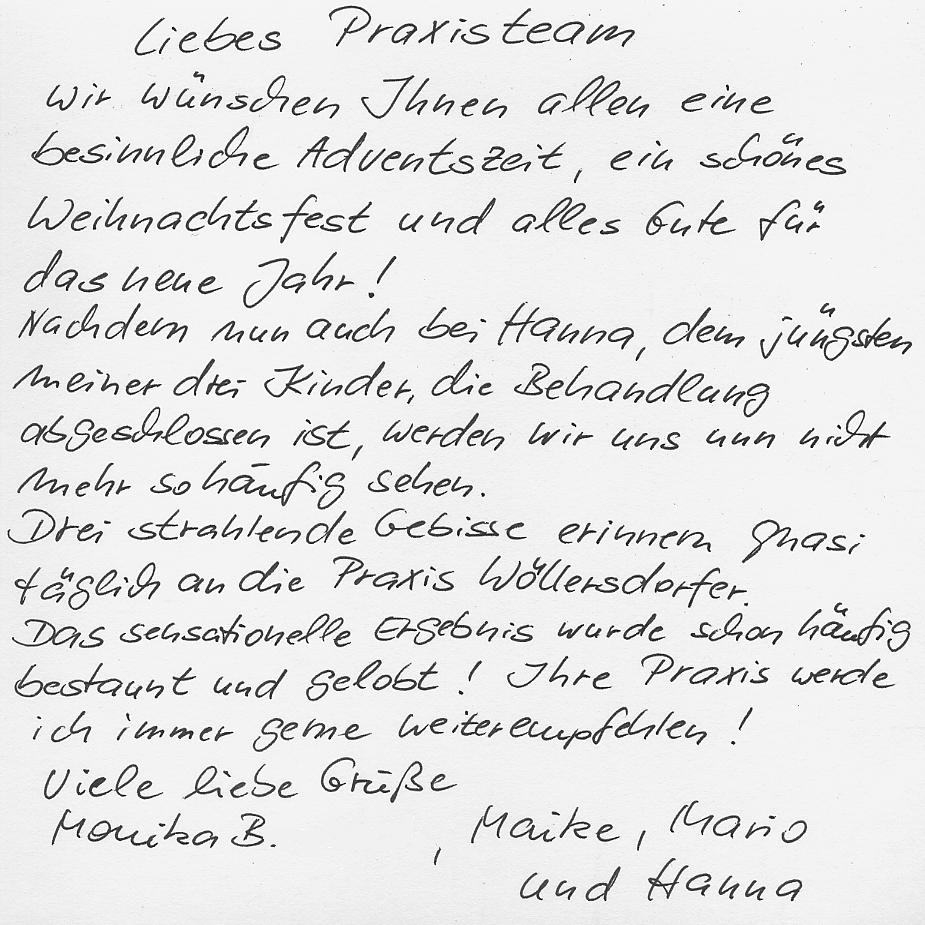 Liebes Praxisteam
wir wünschen Ihnen allen eine
besinnliche Adventszeit, ein schönes
Weihnachtsfest und alles Gute für
das neue Jahr!
Nachdem nun auch bei Hanna, dem jüngsten
meiner drei Kinder, die Behandlung
abgeschlossen ist, werden wir uns nun nicht
mehr so häufig sehen.
Drei strahlende Gebisse erinnern quasi
täglich an die Praxis Wöllersdorfer.
Das sensationelle Ergebnis wurde schon häufig
bestaunt und gelobt! Ihre Praxis werde
ich immer gerne weiterempfehlen!
Viele liebe Grüße
Monika B. , Maike, Mario
und Hanna